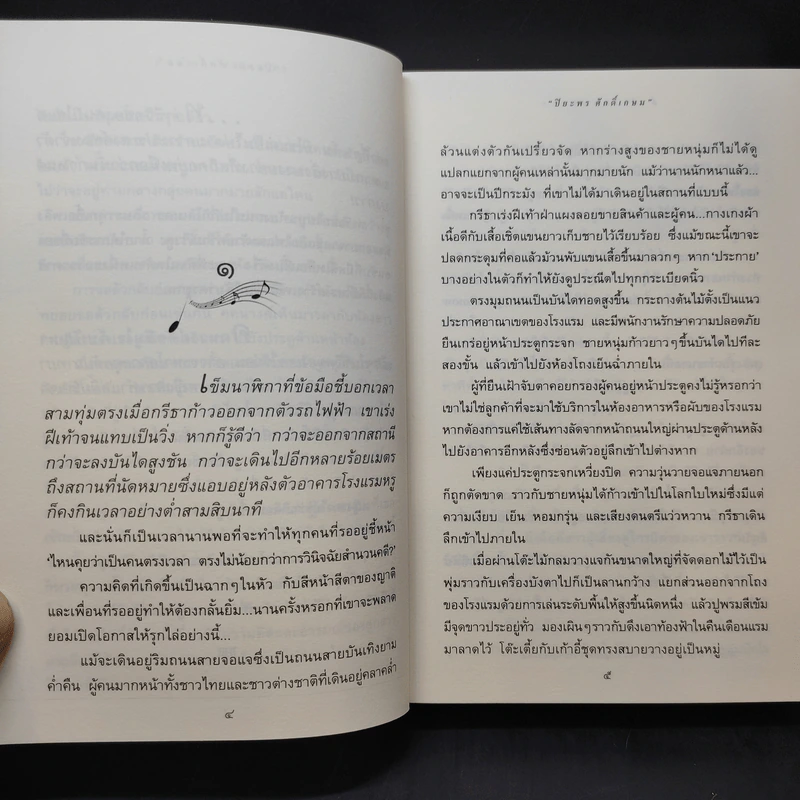 เข็มนาฬิกาที่ข้อมือชี้บอกเวลา
สามทุ่มตรงเมื่อกรีธาก้าวออกจากตัวรถไฟฟ้า เขาเร่ง
ฝีเท้าจนแทบเป็นวิ่ง หากก็รู้ดีว่า กว่าจะออกจากสถานี
กว่าจะลงบันไดสูงชัน กว่าจะเดินไปอีกหลายร้อยเมตร
ถึงสถานที่นัดหมายซึ่งแอบอยู่หลังตัวอาคารโรงแรมหรู
ก็คงกินเวลาอย่างต่ำสามสิบนาที
และนั่นก็เป็นเวลานานพอที่จะทำให้ทุกคนที่รออยู่ชี้หน้า
'ไหนคุยว่าเป็นคนตรงเวลา ตรงไม่น้อยกว่าการวินิจฉัยสำนวนคดี?'
ความคิดที่เกิดขึ้นเป็นฉากๆในหัว กับสีหน้าสีตาของญาติ
และเพื่อนที่รออยู่ทำให้ต้องกลั้นยิ้ม...นานครั้งหรอกที่เขาจะพลาด
ยอมเปิดโอกาสให้รุกไล่อย่างนี้...
แม้จะเดินอยู่ริมถนนสายจอแจซึ่งเป็นถนนสายบันเทิงยาม
ค่ำคืน ผู้คนมากหน้าทั้งชาวไทยและชาวต่างชาติที่เดินอยู่คลาคล่ำ
๔
"ปิยะพร ศักดิ์เกษม"
ล้วนแต่งตัวกันเปรี้ยวจัด หากร่างสูงของชายหนุ่มก็ไม่ได้ดู
แปลกแยกจากผู้คนเหล่านั้นมากมายนัก แม้ว่านานนักหนาแล้ว...
อาจจะเป็นปีกระมัง ที่เขาไม่ได้มาเดินอยู่ในสถานที่แบบนี้
กรีธาเร่งฝีเท้าฝ่าแผงลอยขายสินค้าและผู้คน...กางเกงผ้า
เนื้อดีกับเสื้อเชิ้ตแขนยาวเก็บชายไว้เรียบร้อย ซึ่งแม้ขณะนี้เขาจะ
ปลดกระดุมที่คอแล้วม้วนพับแขนเสื้อขึ้นมาลวกๆ หาก 'ประกาย'
บางอย่างในตัวก็ทำให้ยังดูประณีตไปทุกกระเบียดนิ้ว
ตรงมุมถนนเป็นบันไดทอดสูงขึ้น กระถางต้นไม้ตั้งเป็นแนว
ประกาศอาณาเขตของโรงแรม และมีพนักงานรักษาความปลอดภัย
ยืนเกร่อยู่หน้าประตูกระจก ชายหนุ่มก้าวยาวๆขึ้นบันไดไปทีละ
สองขั้น แล้วเข้าไปยังห้องโถงเย็นฉ่ำภายใน
ผู้ที่ยืนเฝ้าจับตาคอยกรองผู้คนอยู่หน้าประตูคงไม่รู้หรอกว่า
เขาไม่ใช่ลูกค้าที่จะมาใช้บริการในห้องอาหารหรือผับของโรงแรม
หากต้องการแค่ใช้เส้นทางลัดจากหน้าถนนใหญ่ผ่านประตูด้านหลัง
ไปยังอาคารอีกหลังซึ่งซ่อนตัวอยู่ลึกเข้าไปต่างหาก
เพียงแค่ประตูกระจกเหวี่ยงปิด ความวุ่นวายจอแจภายนอก
ก็ถูกตัดขาด ราวกับชายหนุ่มได้ก้าวเข้าไปในโลกใบใหม่ซึ่งมีแต่
ความเงียบ เย็น หอมกรุ่น และเสียงดนตรีแว่วหวาน กรีธาเดิน
ลึกเข้าไปภายใน
เมื่อผ่านโต๊ะไม้กลมวางแจกันขนาดใหญ่ที่จัดดอกไม้ไว้เป็น
พุ่มราวกับเครื่องบังตาไปก็เป็นลานกว้าง แยกส่วนออกจากโถง
ของโรงแรมด้วยการเล่นระดับพื้นให้สูงขึ้นนิดหนึ่ง แล้วปูพรมสีเข้ม
มีจุดขาวประอยู่ทั่ว มองเผินๆราวกับดึงเอาท้องฟ้าในคืนเดือนแรม
มาลาดไว้ โต๊ะเตี้ยกับเก้าอี้ชุดทรงสบายวางอยู่เป็นหมู่
๕